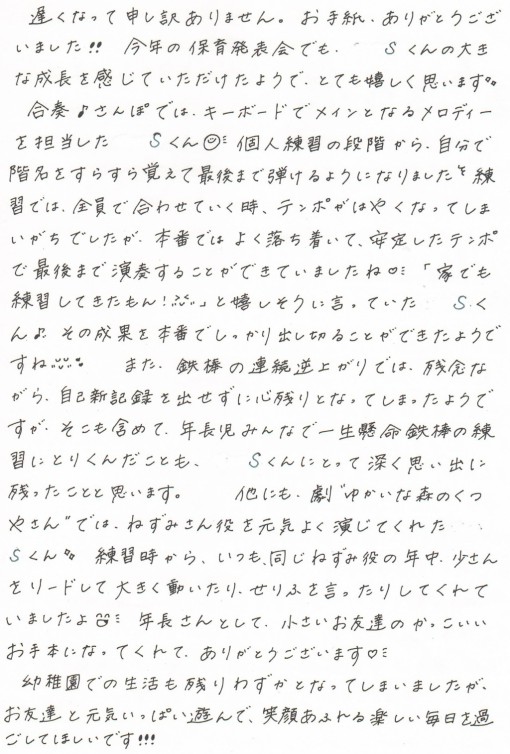 遅くなって申し訳ありません。お手紙、ありがとうござ
いました!! 今年の保育発表会でも、 Sくんの大き
な成長を感じていただけたようで、とても嬉しく思います
合奏♪さんぽでは、キーボードでメインとなるメロディー
を担当した Sくん☺ 個人練習の段階から、自分で
階名をすらすら覚えて最後まで弾けるようになりました 練
習では、全員で合わせていく時、テンポがはやくなってしま
いがちでしたが、本番ではよく落ち着いて、安定したテンポ
で最後まで演奏することができていましたね♡ 「家でも
練習してきたもん!」と嬉しそうに言っていた Sく
ん♪ その成果を本番でしっかり出し切ることができたようで
すね また、鉄棒の連続逆上がりでは、残念な
がら、自己新記録を出せずに心残りとなってしまったようで
すが、そこも含めて、年長児みんなで一生懸命鉄棒の練
習にとりくんだことも、 Sくんにとって深く思い出に
残ったことと思います。 他にも、劇“ゆかいな森のくつ
やさん”では、ねずみさん役を元気よく演じてくれた
Sくん 練習時から、いつも、同じねずみ役の年中、少さん
をリードして大きく動いたり、せりふを言ったりしてくれて
いましたよ 年長さんとして、小さいお友達のかっこいい
お手本になってくれて、ありがとうございます♡
幼稚園での生活も残りわずかとなってしまいましたが、
お友達と元気いっぱい遊んで、笑顔あふれる楽しい毎日を過
ごしてほしいです!!!